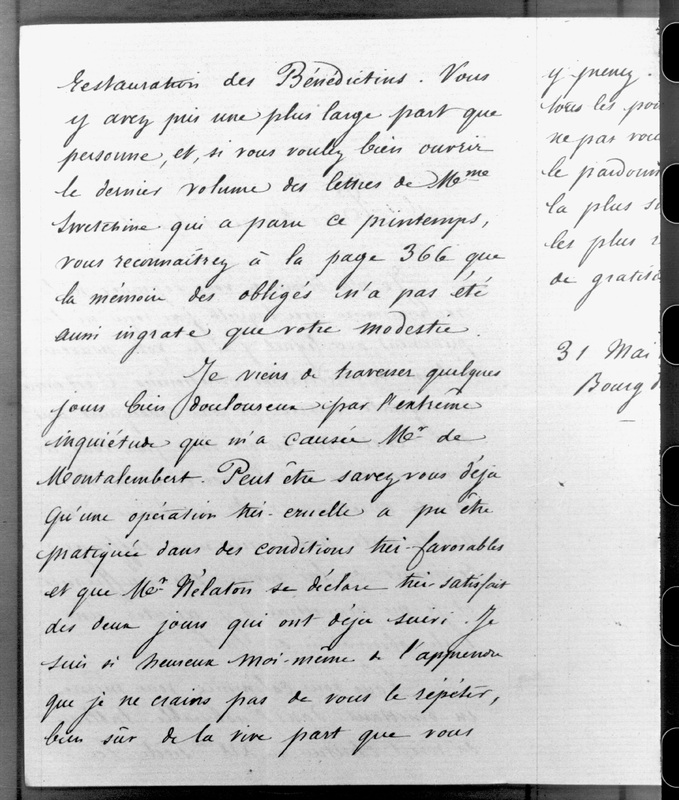 Restauration des Bénédictins. Vous
y avez pris une plus large part que
personne, et, si vous voulez bien ouvrir
le dernier volume des lettres de Mme
Swetchine qui a paru ce printemps,
vous reconnaîtrez à la page 366 que
la mémoire des obligés n'a pas été
aussi ingrate que votre modestie.
Je viens de traverser quelques
jours bien douloureux par l'extrême
inquiétude que m'a causée Mr de
Montalembert. Peut être savez vous déja
qu'une opération très-cruelle a pu être
pratiquée dans des conditions très-favorables
et que Mr Nélaton se déclare très-satisfait
des deux jours qui ont déja suivi. Je
suis si heureux moi-même de l'apprendre
que je ne crains pas de vous le répéter,
bien sûr de la vive part que vous
y prenez.
tous les
ne pas
le
la plus
les plus
de
31 Mai
Bourg